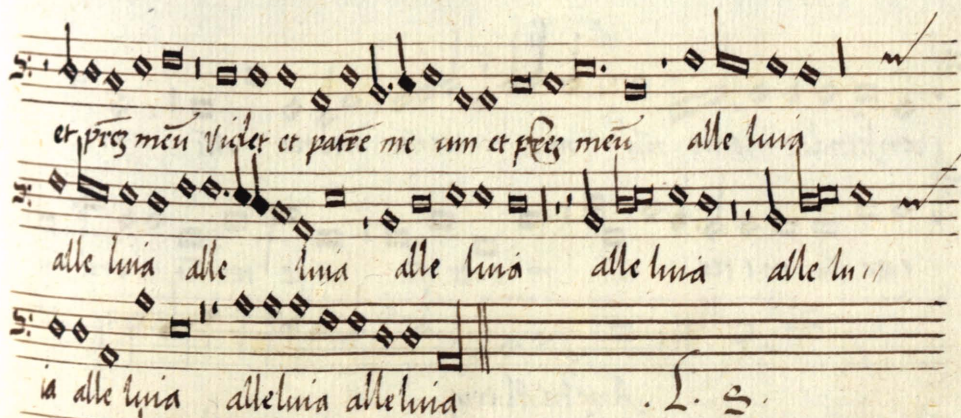 et prēʒ meū videt et patrē me um et prēʒ meū alle luia
alle luia alle luia alle luia alle luia alle lu
ia alle luia alleluia alleluia . L . S .